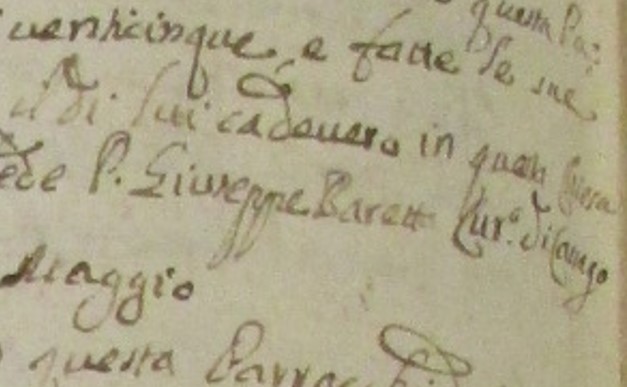 questa
venticinque e fatte le sue
il di lui cadavero in questa Chiesa
ede P. Giuseppe Baretti Cur.º di
Maggio
questa Parrocchi